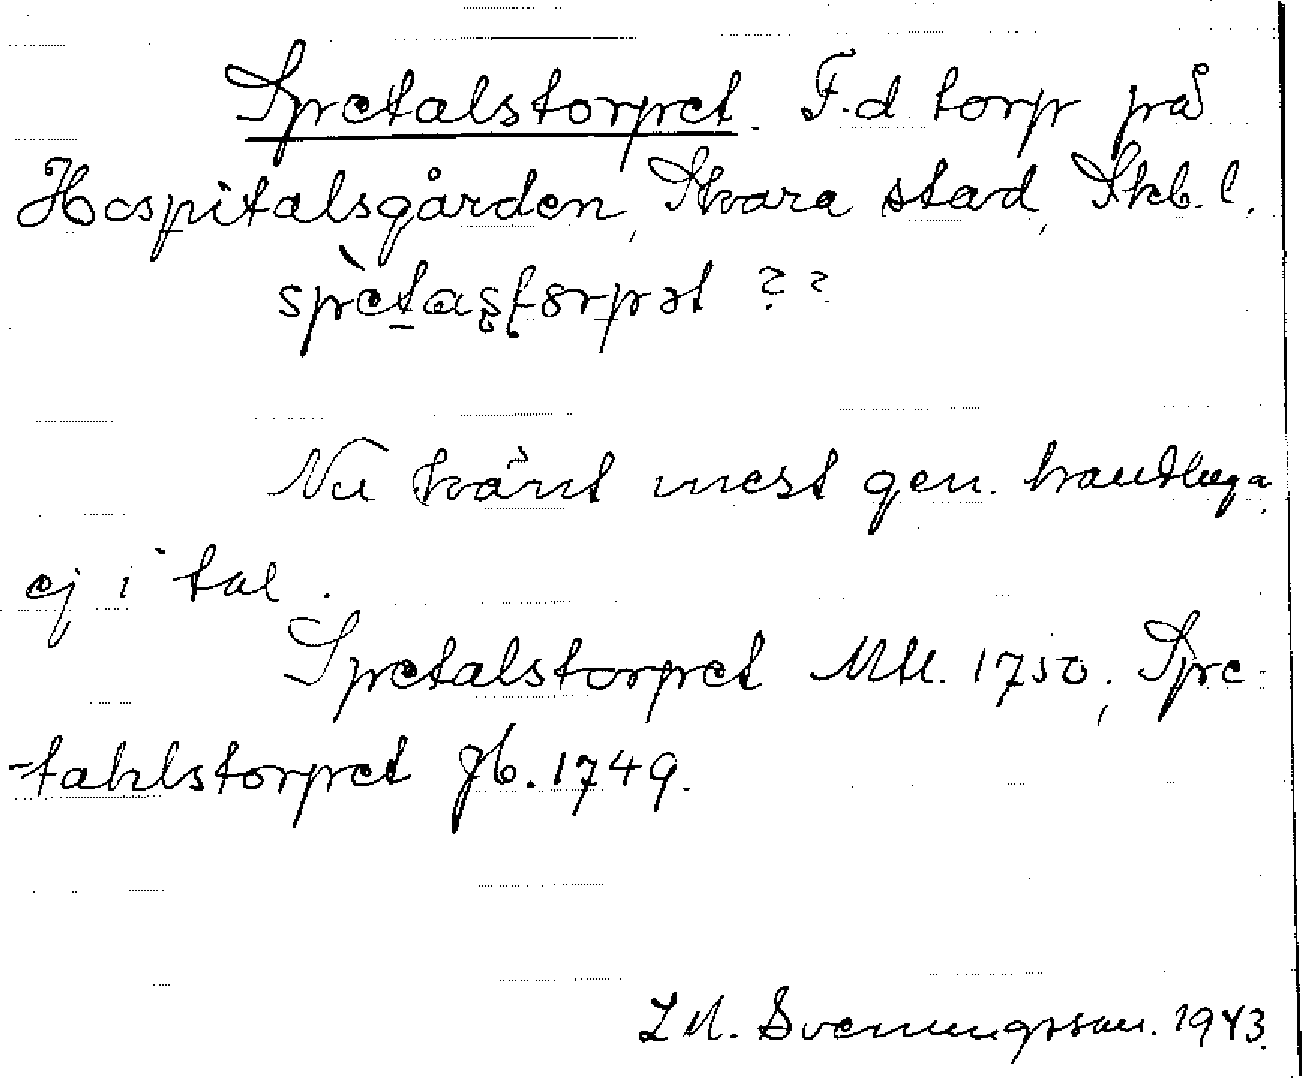 Spretalstorpet. F.d torp på
Hospitalsgården, Skara stad, Skb. l.
sprètastorpət ? ?
Nu känt mest gen. handlingar,
ej i tal.
Spretalstorpet Mtl. 1750, Spre-
-tahlstorpet Jb. 1749.
L M. Svenungsson. 1943.